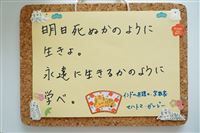 明日死ぬかのように
生きよ。
永遠に生きるかのように
学べ。
インドの弁護士、宗教家
マハトマ・ガンジー